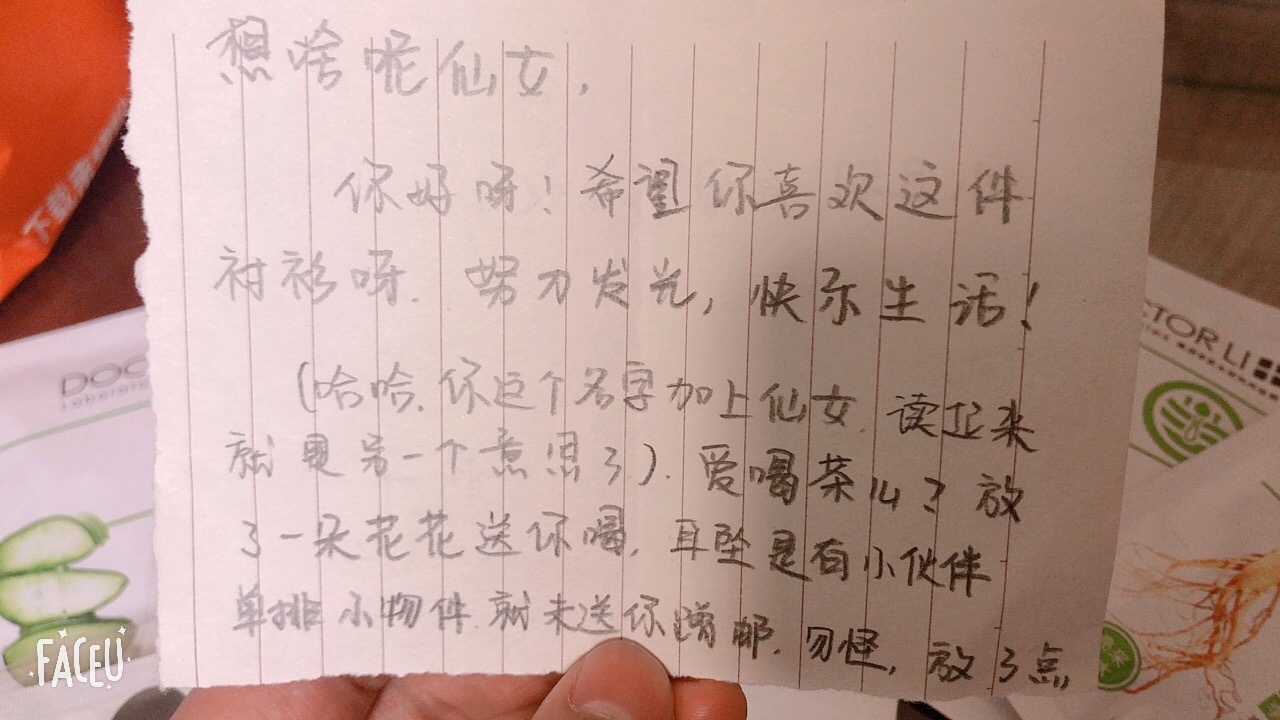 想啥呢仙女，
你好呀！希望你喜欢这件
衬衫呀。努力发光，快乐生活！
（哈哈，你这个名字加上仙女，读起来
就是另一个意思了）。爱喝茶儿？放
了一朵花花送你喝，耳坠是有小伙伴
单排小物件，就来送你蹭邮，勿怪，放了点
下载
DOC
CTOR LI
FACEU